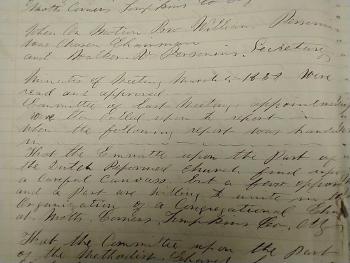 Motts Corners, Tompkins Co
When On Motion Rev. William Personius
was Chosen Chairman
and Walker D. Personius, Secretary
Minutes of Meeting March 5, 188 were
read and approved.
Committee of Last Meeting, appointment
were then called upon to report in
when the following report was handed
in
That the Committee upon the Part of
the Dutch Reformed Church find upon
a careful Canvass that a few oppose
and a Part are willing to unite in the
Organization of a Congregational Church
at Motts Corners, Tompkins Co.,
That the Committee upon the Part
of the Methodist